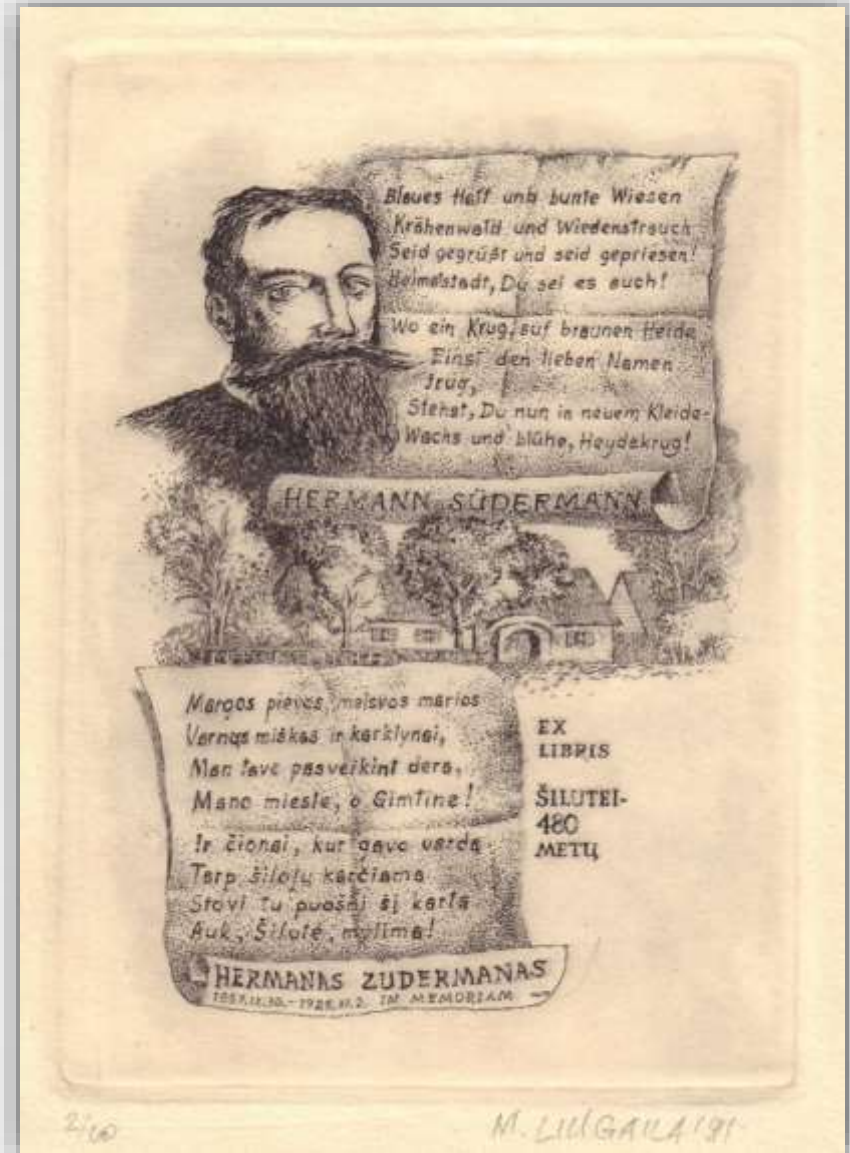 Blaues Haff und bunte Wiesen
Krähenwald und Wiedenstrauch
Seid gegrüßt und seid gepriesen!
Heimatstadt, Du sei es auch!
Wo ein Krug, auf braunen Heide
Einst den lieben Namen
trug,
Stehst, Du nun in neuem Kleide-
Wachs und blühe, Heydekrug!
HERMANN SÜDERMANN
Margos pievos, melsvos marios
Varnųs miškas ir karklynai,
Man tave pasveikint dera,
Mano mieste, o Gimtine!
Ir čionai, kur gavo vardą
Tarp šilojų karčiama
Stovi tu puošni šį kartą
Auk, Šilute, mylima!
HERMANAS ZUDERMANAS
1857.IX.30.-1928.XI.2. IN MEMORIAM
EX
LIBRIS
ŠILUTEI-
480
METŲ
M. '91